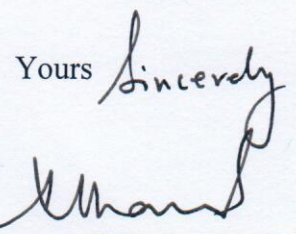 Yours Sincerely